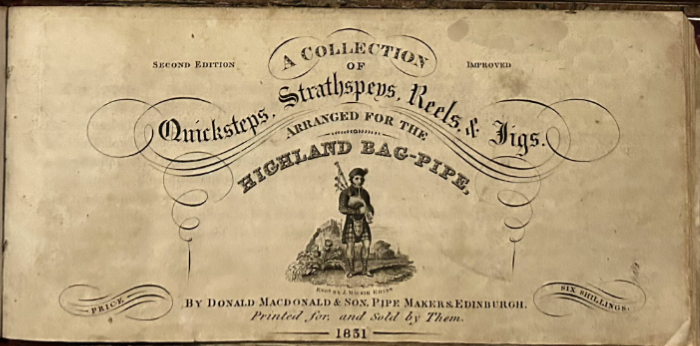 SECOND EDITION
IMPROVED
A COLLECTION
OF
Quicksteps, Strathspeys, Reels, & Jigs.
ARRANGED FOR THE
HIGHLAND BAG-PIPE,
BY DONALD MACDONALD & SON, PIPE MAKERS EDINBURGH.
Printed for, and Sold by Them.
PRICE
SIX SHILLINGS.
1831